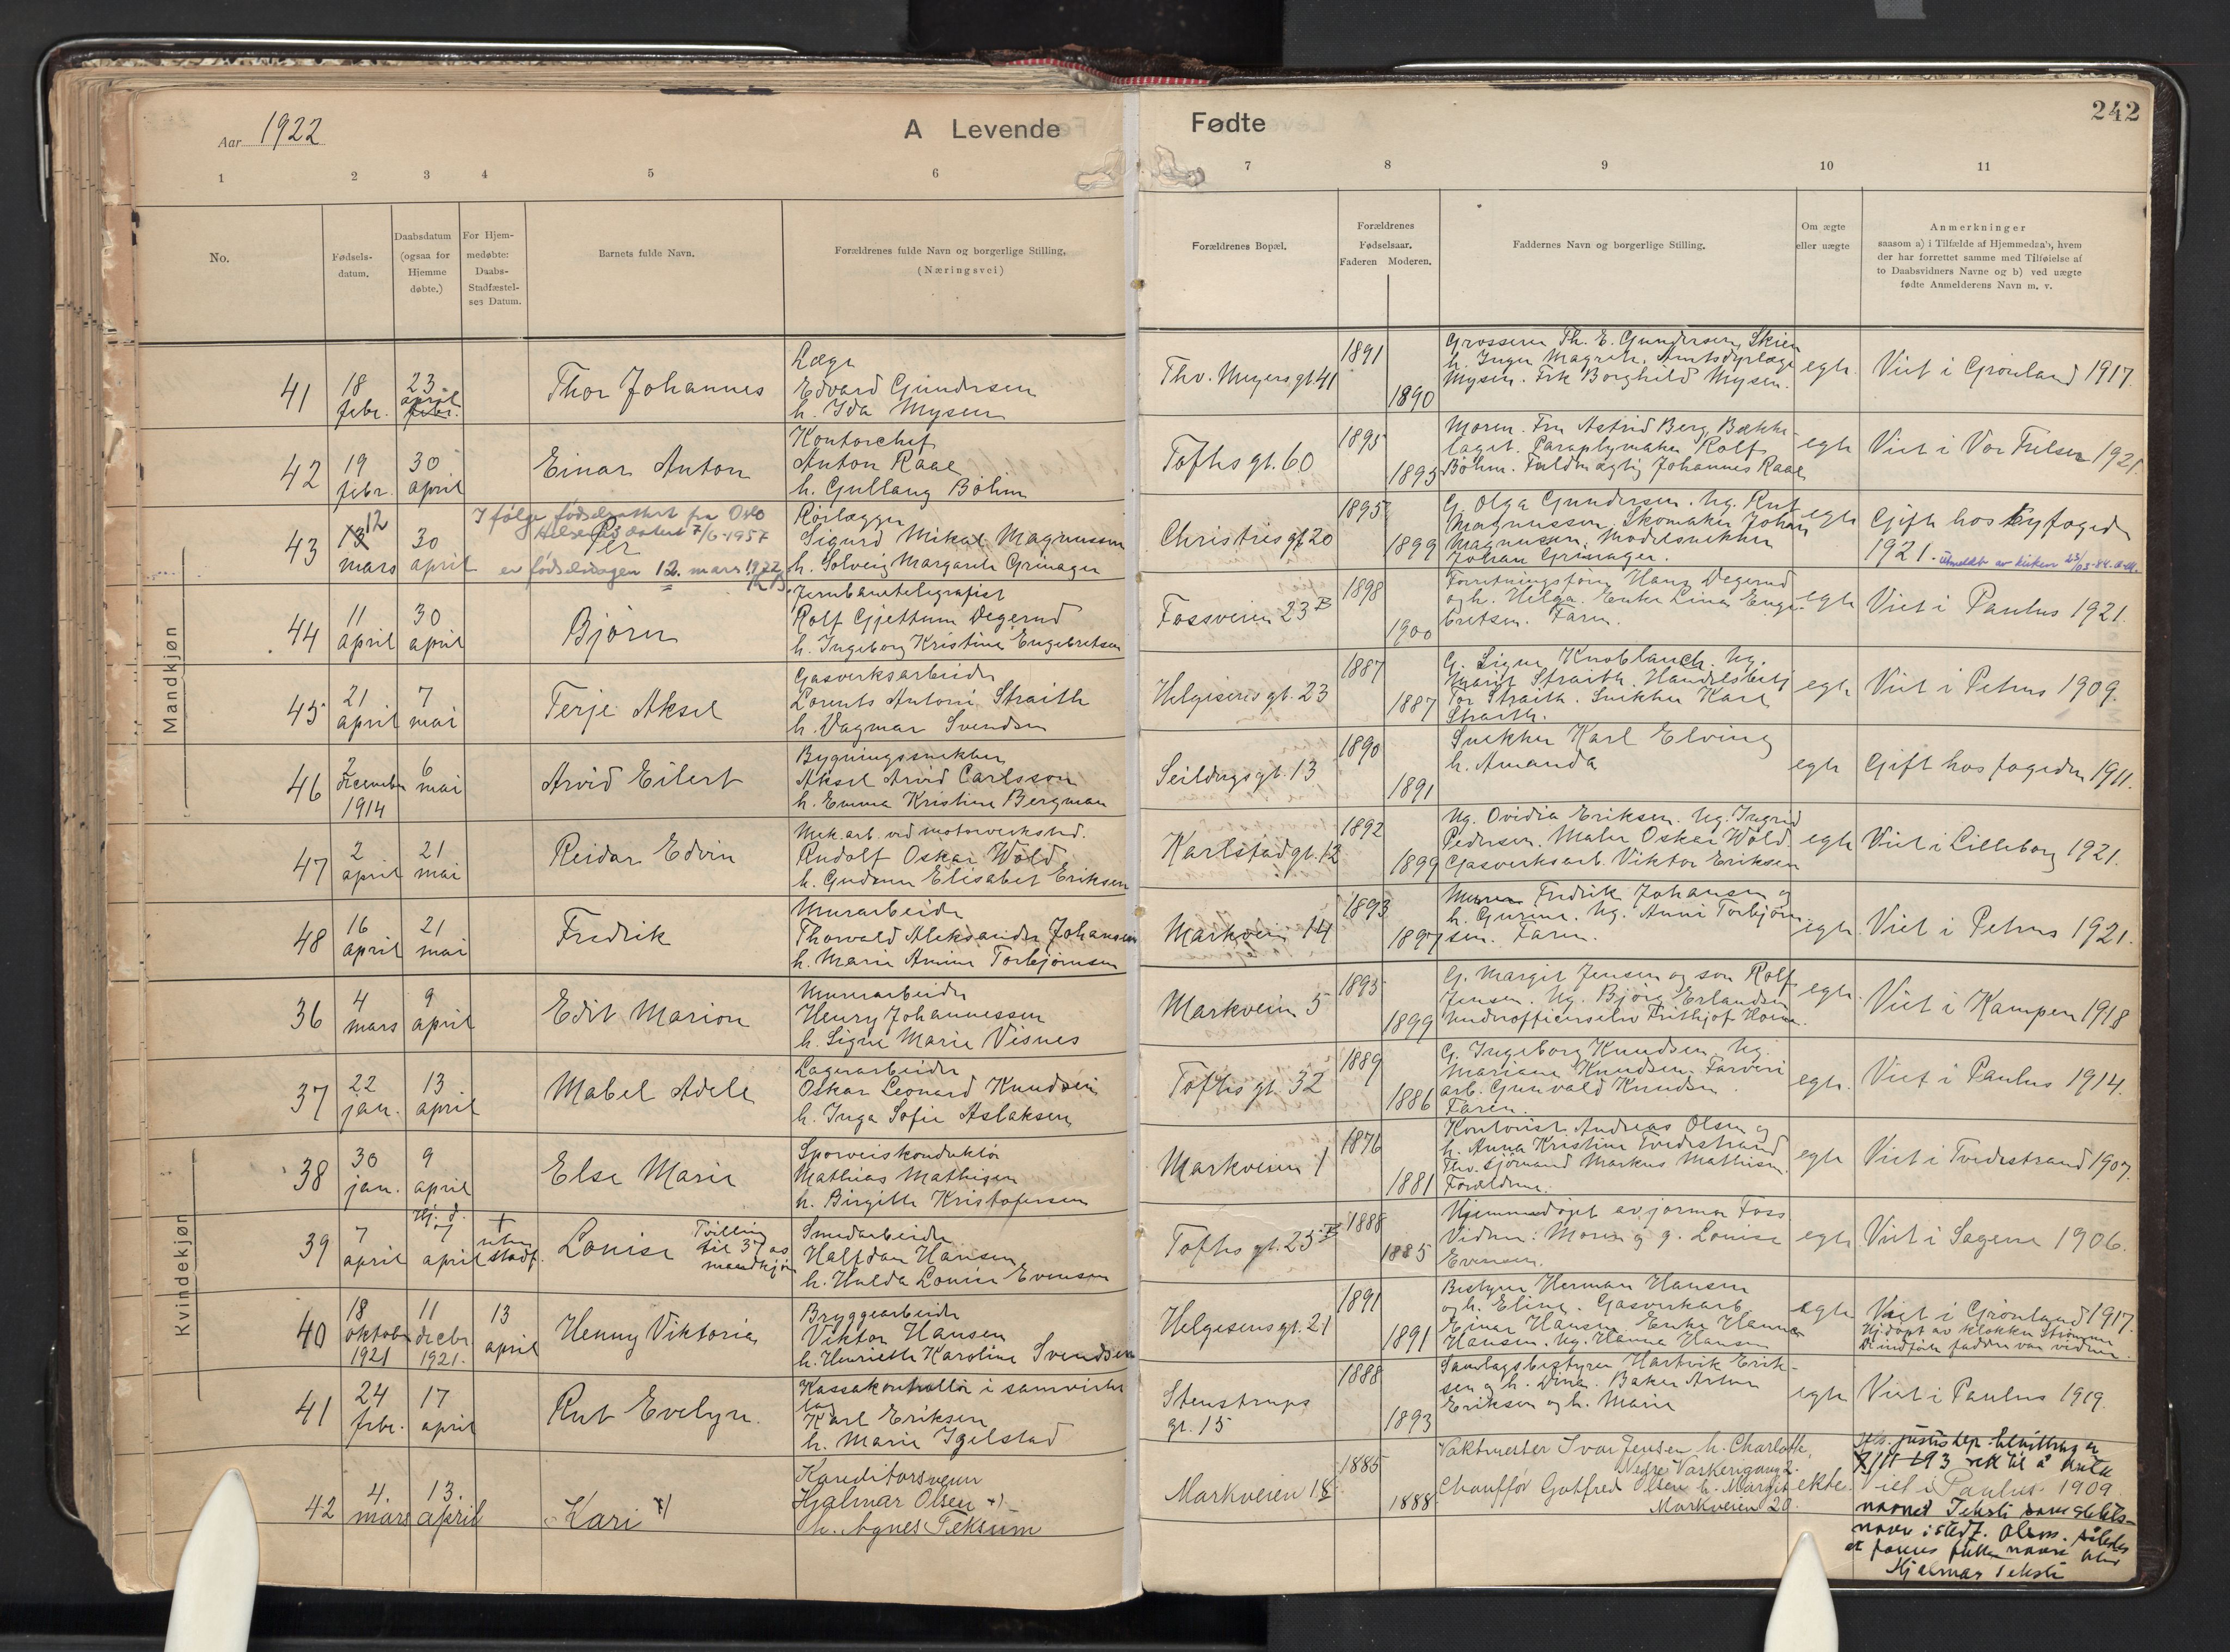 Aar 1922
A Levende
Fødte
242
1 2 3 4 5 6
7 8 9 10 11
No.
Fødsels-
datum.
Daabsdatum
(ogsaa for
Hjemme
døbte.)
For Hjem-
medøbte:
Daabs-
Stadfæstel-
ses Datum.
Barnets fulde Navn.
Forældrenes fulde Navn og borgerlige Stilling,
(Næringsvei)
Forældrenes Bopæl.
Forældrenes
Fødselsaar.
Faderen Moderen.
Faddernes Navn og borgerlige Stilling.
Om ægte
eller uægte
Anmerkninger
saasom a) i Tilfælde af Hjemmedaab, hvem
der har forrettet samme med Tilføielse af
to Daabsvidners Navne og b) ved uægte
fødte Anmelderens Navn m. v.
Mandkjøn
41
18
febr.
23
april
febr.
Thor Johannes
Læge
Edvard Gundersen
h. Ida Mysen
Thv. Meyersgt 41
1891
1890
Grosserer Th. E. Gundersen, Skien
h. Inger Magrete. Amtsdyrlæge
Mysen. Frk Borghild Mysen.
egte
Viet i Grønland 1917.
42
19
febr.
30
april
Einar Anton
Kontorchef
Anton Raae
h. Gullaug Bøhm
Toftesgt. 60
1895
1895
Moren. Fru Astrid Berg, Bække-
laget. Paraplymaker Rolf
Bøhm. Fuldmægtig Johannes Raae
egte
Viet i Vor Frelser 1921.
43
13 12
mars
30
april
I følge fødselsattest fra Oslo
Helseråd datert 7/6-1957
er fødselsdagen 12. mars 1922
Per
Rørlægger
Sigurd Mikal Magnussen
h. Solveig Margarete Grinager
Christiesgt 20
1895
1899
G. Olga Gundersen. Ug. Rut
Magnussen. Skomaker Johan
Magnussen. Modelsnekker
Johan Grinager.
egte
Gift hos Byfogden
1921. utmeldt av kirken 23/03-84.
44
11
april
30
april
Bjørn
Jernbanetelegrafist
Rolf Gjettum Degerud
h. Ingeborg Kristine Engebretsen
Fossveien 23 B
1898
1900
Forretningsfører Hans Degerud
og h. Helga. Enke Lina Enge-
bretsen. Faren.
egte
Viet i Paulus 1921.
45
21
april
7
mai
Terje Aksel
Gasverksarbeider
Lorents Antoni Straith
h. Dagmar Svendsen
Helgesensgt. 23
1887
1887
G. Signe Knoblauch. Ug.
Marit Straith. Handelsbetj
Tor Straith. Snekker Karl
Straith.
egte
Viet i Petrus 1909.
46
2
december
1914
6
mai
Arvid Eilert
Bygningssnekker
Aksel Arvid Carlsson
h. Emma Kristine Bergman
Seildugsgt. 13
1890
1891
Snekker Karl Elving
h. Amanda
egte
Gift hos fogden 1911.
47
2
april
21
mai
Reidar Edvin
Mek. arb. ved motorverksted.
Rudolf Oskar Wold
h. Gudrun Elisabet Eriksen
Karlstadgt. 12
1892
1899
Ug. Ovidia Eriksen. Ug. Ingrid
Pedersen. Maler Oskar Wold.
Gasverksarb. Viktor Eriksen
egte
Viet i Lilleborg 1921.
48
16
april
21
mai
Fredrik
Murarbeider
Thorvald Aleksander Johansen
h. Marie Amine Torbjørnsen
Markveien 14
1893
1897
Murer Fredrik Johansen og
h. Gurine. Ug. Anni Torbjørn-
sen. Faren.
egte
Viet i Petrus 1921.
36
4
mars
9
april
Edit Marion
Murerarbeider
Henry Johannessen
h. Signe Marie Visnes
Markveien 5
1895
1899
G. Margit Jensen og søn Rolf
Jensen. Ug. Bjørg Erlandsen
Underofficerselev Frithjof
egte
Viet i Kampen 1918
37
22
jan.
13
april
Mabel Adele
Lagerarbeider
Oskar Leonard Knudsen
h. Inga Sofie Aslaksen
Toftesgt. 32
1889
1886
G. Ingeborg Knudsen. Ug.
Mariane Knudsen. Farveri
arb. Gunvald Knudsen
Faren.
egte.
Viet i Paulus 1914.
Kvindekjøn
38
30
jan.
9
april
Else Marie
Sporveiskonduktør
Mathias Mathisen
h. Birgitte Kristofersen
Markveien 1
1876
1881
Kontorist Andreas Olsen og
h. Anna Kristine Tvedestrand
Fhv. sjømand Markus Mathisen.
Forældrene.
egte
Viet i Tvedestrand 1907.
39
7
april
Hj. d.
7
april
†
uten
stadf.
Louise
Tvilling
til 37 as
mandkjøn
Smedarbeider
Halfdan Hansen
h. Hulda Louise Evensen
Toftes gt. 25 B
1888
1885
Hjemmedøpt av jormor Foss
Vidner: Moren og g. Louise
Evensen.
egte
Viet i Sagene 1906.
40
18
oktober
1921
11
decbr.
1921.
13
april
Henny Viktoria
Bryggearbeider
Viktor Hansen
h. Henriette Karoline Svendsen
Helgesensgt. 21
1891
1891
Bestyrer Herman Hansen
og h. Eline. Gasverkarb.
Einar Hansen. Enke Hanna
Hansen. Ug. Hanna Hansen
egte
Viet i Grønland 1917.
Hj.døpt av klokker Strømme
De indførte faddere var vidner.
41
24
febr.
17
april
Rut Evelyn.
Kassakontrollør i samvirke
lag
Karl Eriksen
h. Marie Igelstad
Stenstrups
gt. 15
1888
1893
Samlagsbestyrer Hartvik Erik-
sen og h. Dina. Baker Artur
Eriksen og h. Marie
egte
Viet i Paulus 1919.
42
4.
mars
13.
april
Kari x)
Konditorsvenn
Hjalmar Olsen x)
h. Agnes Teksum
Markveien 18
1885
1888
Vaktmester Ivar Jensen h. Charlotte,
Nedre Vaskerigang 2.
Chauffør Gotfred Olsen h. Margit
Markveien 20.
ekte.
Viet i Paulus 1909
justisdep. bevilling
navnet Teksti som slekts-
navn istedf. Olsen. således
at farens fulde navn blir
Hjalmar Teksti